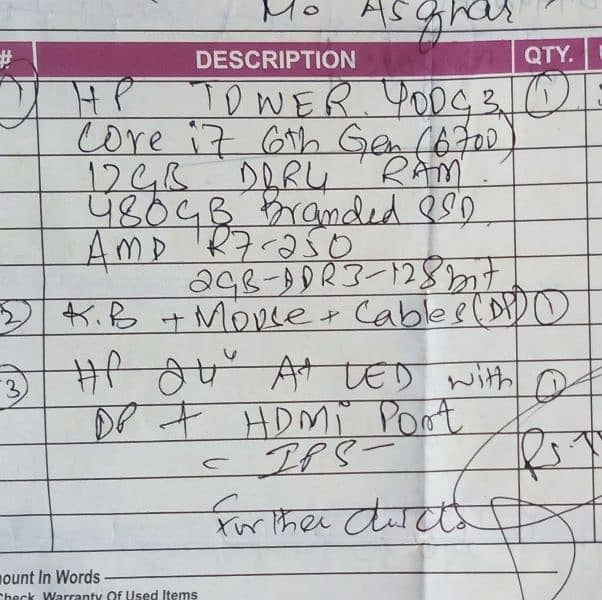 Mo Asghar
# DESCRIPTION QTY.
1 HP TOWER. 400G3 1
Core i7 6th Gen (6700)
12GB DDR4 RAM.
480GB Branded SSD
AMD R7-250
2GB-DDR3-128bit
2 K.B + Mouse + Cables (DP) 1
3 HP 24" A+ LED with 1
DP + HDMi Port
- IPS - Rs.
Further
ount In Words
Check Warranty Of Used Items